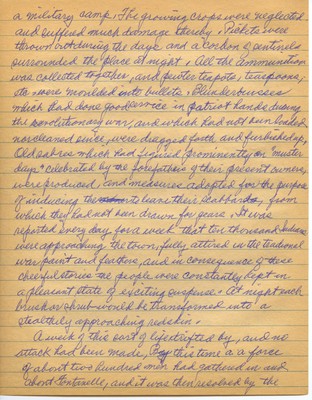 a military camp. The growing crops were neglected
and suffered much damage thereby. Pickets were
thrown out during the days and a cordon of sentinels
surrounded the place at night. All the ammunition
was collected together, and pewter teapots, teaspoons,
etc. were moulded into bullets. Blunderbusses
which had done good service in patriot hands during
the revolutionary war, and which had not been loaded
nor cleaned since, were dragged forth and furbished up,
Old sabres which had figured prominently on "muster
days" celebrated by the forefathers of their present owners,
were produced, and measures adopted for the purpose
of inducing them to leave their scabbards, from
which they had not been drawn for years. It was
reported every day for a week that ten thousand Indians
were approaching the town, fully attired in the traditional
war paint and feathers, and in consequence of these
cheerful stories the people were constantly kept in
a pleasant state of exciting suspense. At night each
bush or shrub would be transformed into a
stealthily approaching redskin.
A week of this sort of life drifted by, and no
attack had been made, By this time a a force
of about two hundred men had gathered in and
about Fontanelle, and it was then resolved by the